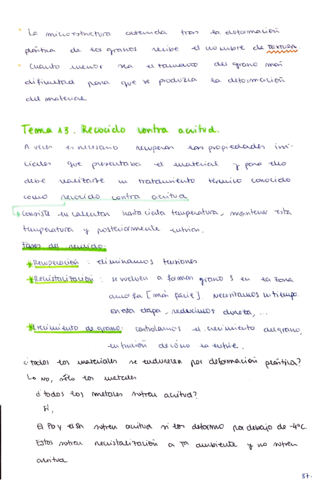 - La microestructura obtenida tras la deformación
plástica de los granos recibe el nombre de TEXTURA
- Cuanto menor sea el tamaño del grano más
dificultad para que se produzca la deformación
del material.
Tema 13. Recocido contra acritud.
A veces es necesario recuperar las propiedades ini-
ciales que presentaba el material y para ello
debe realizarse un tratamiento térmico conocido
como recocido contra acritud
Consiste en calentar hasta cierta temperatura, mantener esta
temperatura y posteriormente enfriar.
Fases del recocido:
Recuperación: eliminamos tensiones
Recristalización: se vuelven a formar granos en la zona
[más ] necesitamos un tiempo
en esta etapa, reducimos dureza, ...
Crecimiento de grano: controlamos el crecimiento del grano,
en función de cómo se enfríe.
¿todos los materiales se endurecen por deformación plástica?
↳ no, sólo los metales
¿todos los metales sufren acritud?
Sí,
El Pb y el Sn sufren acritud si los deformo por debajo de -4ºC
Estos sufren recristalización a Tª ambiente y no sufren
acritud
37.